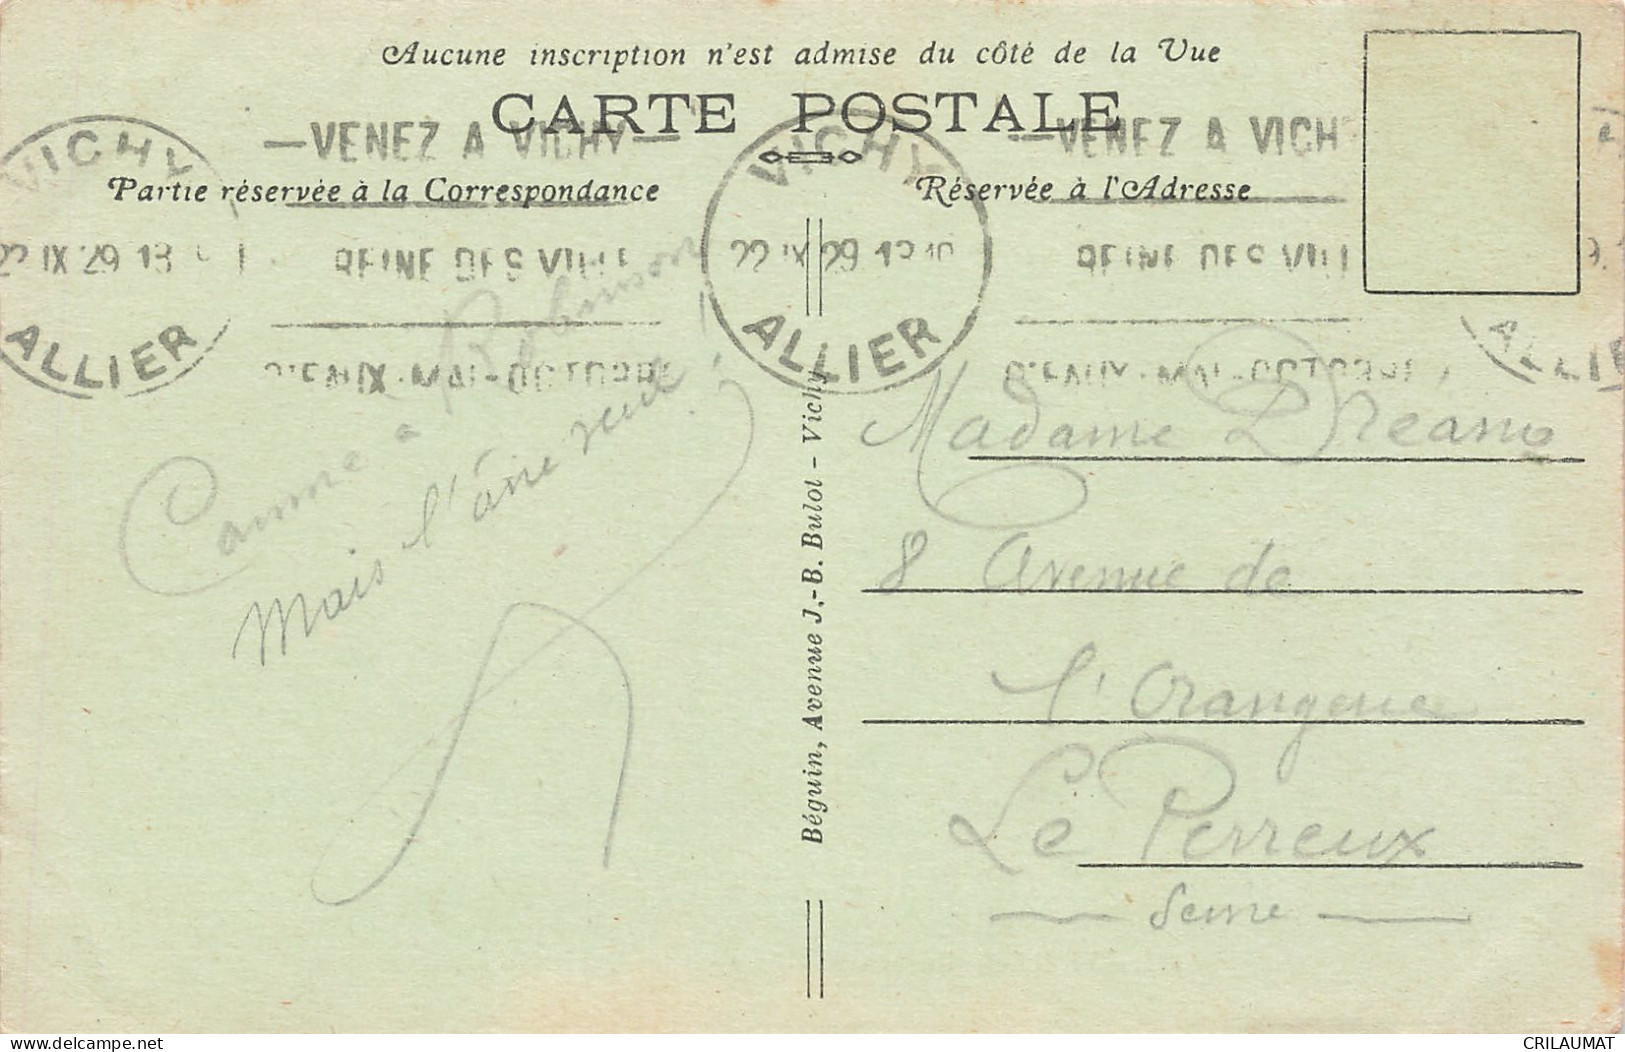 Aucune inscription n'est admise du côté de la Vue
CARTE POSTALE
—VENEZ A VICHY—
—VENEZ A VICH
VICHY
22 IX 29 13
ALLIER
VICHY
22 IX 29 1310
ALLIER
ALLIE
Partie réservée à la Correspondance
Réservée à l'Adresse
REINE DES VILLE
REINE DES VILL
D'EAUX·MAI-OCTOBRE
D'EAUX·MAI-OCTOBRE
Comme à Robinson
Mais l'âne rue!
Béguin, Avenue J.-B. Bulot - Vichy
Madame
8 Avenue de
l'Orangerie
Le Perreux
Seine
delcampe.net
CRILAUMAT